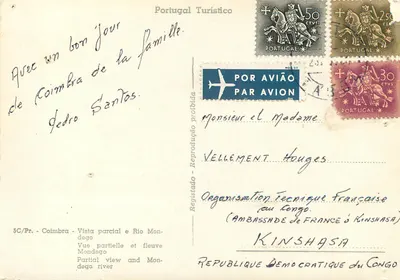 Portugal Turístico
Avec un bon jour
de Coimbra de la famille.
Pedro Santos.
5C/Pt. - Coimbra - Vista parcial e Rio Mon-
dego
Vue partielle et fleuve
Mondego
Partial view and Mon-
dego river
Registado - Reprodução proibida
50
CENTAVOS
PORTUGAL
25
PORTUGAL
30
PORTUGAL
POR AVIÃO
PAR AVION
Monsieur et Madame
VELLEMENT Houges
Organisation Tecnique Française
au Congo.
(AMBASSADE DE FRANCE À KINSHASA)
KINSHASA
REPUBLIQUE DEMOCRATIQUE DU CONGO